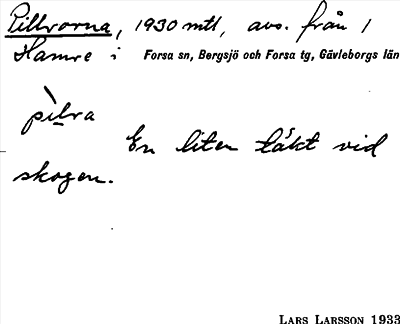 Pillvorna, 1930 mtl, avs. från 1
Hamre i Forsa sn, Bergsjö och Forsa tg, Gävleborgs län
pi̱lva
En liten täkt vid
skogen.
LARS LARSSON 1933